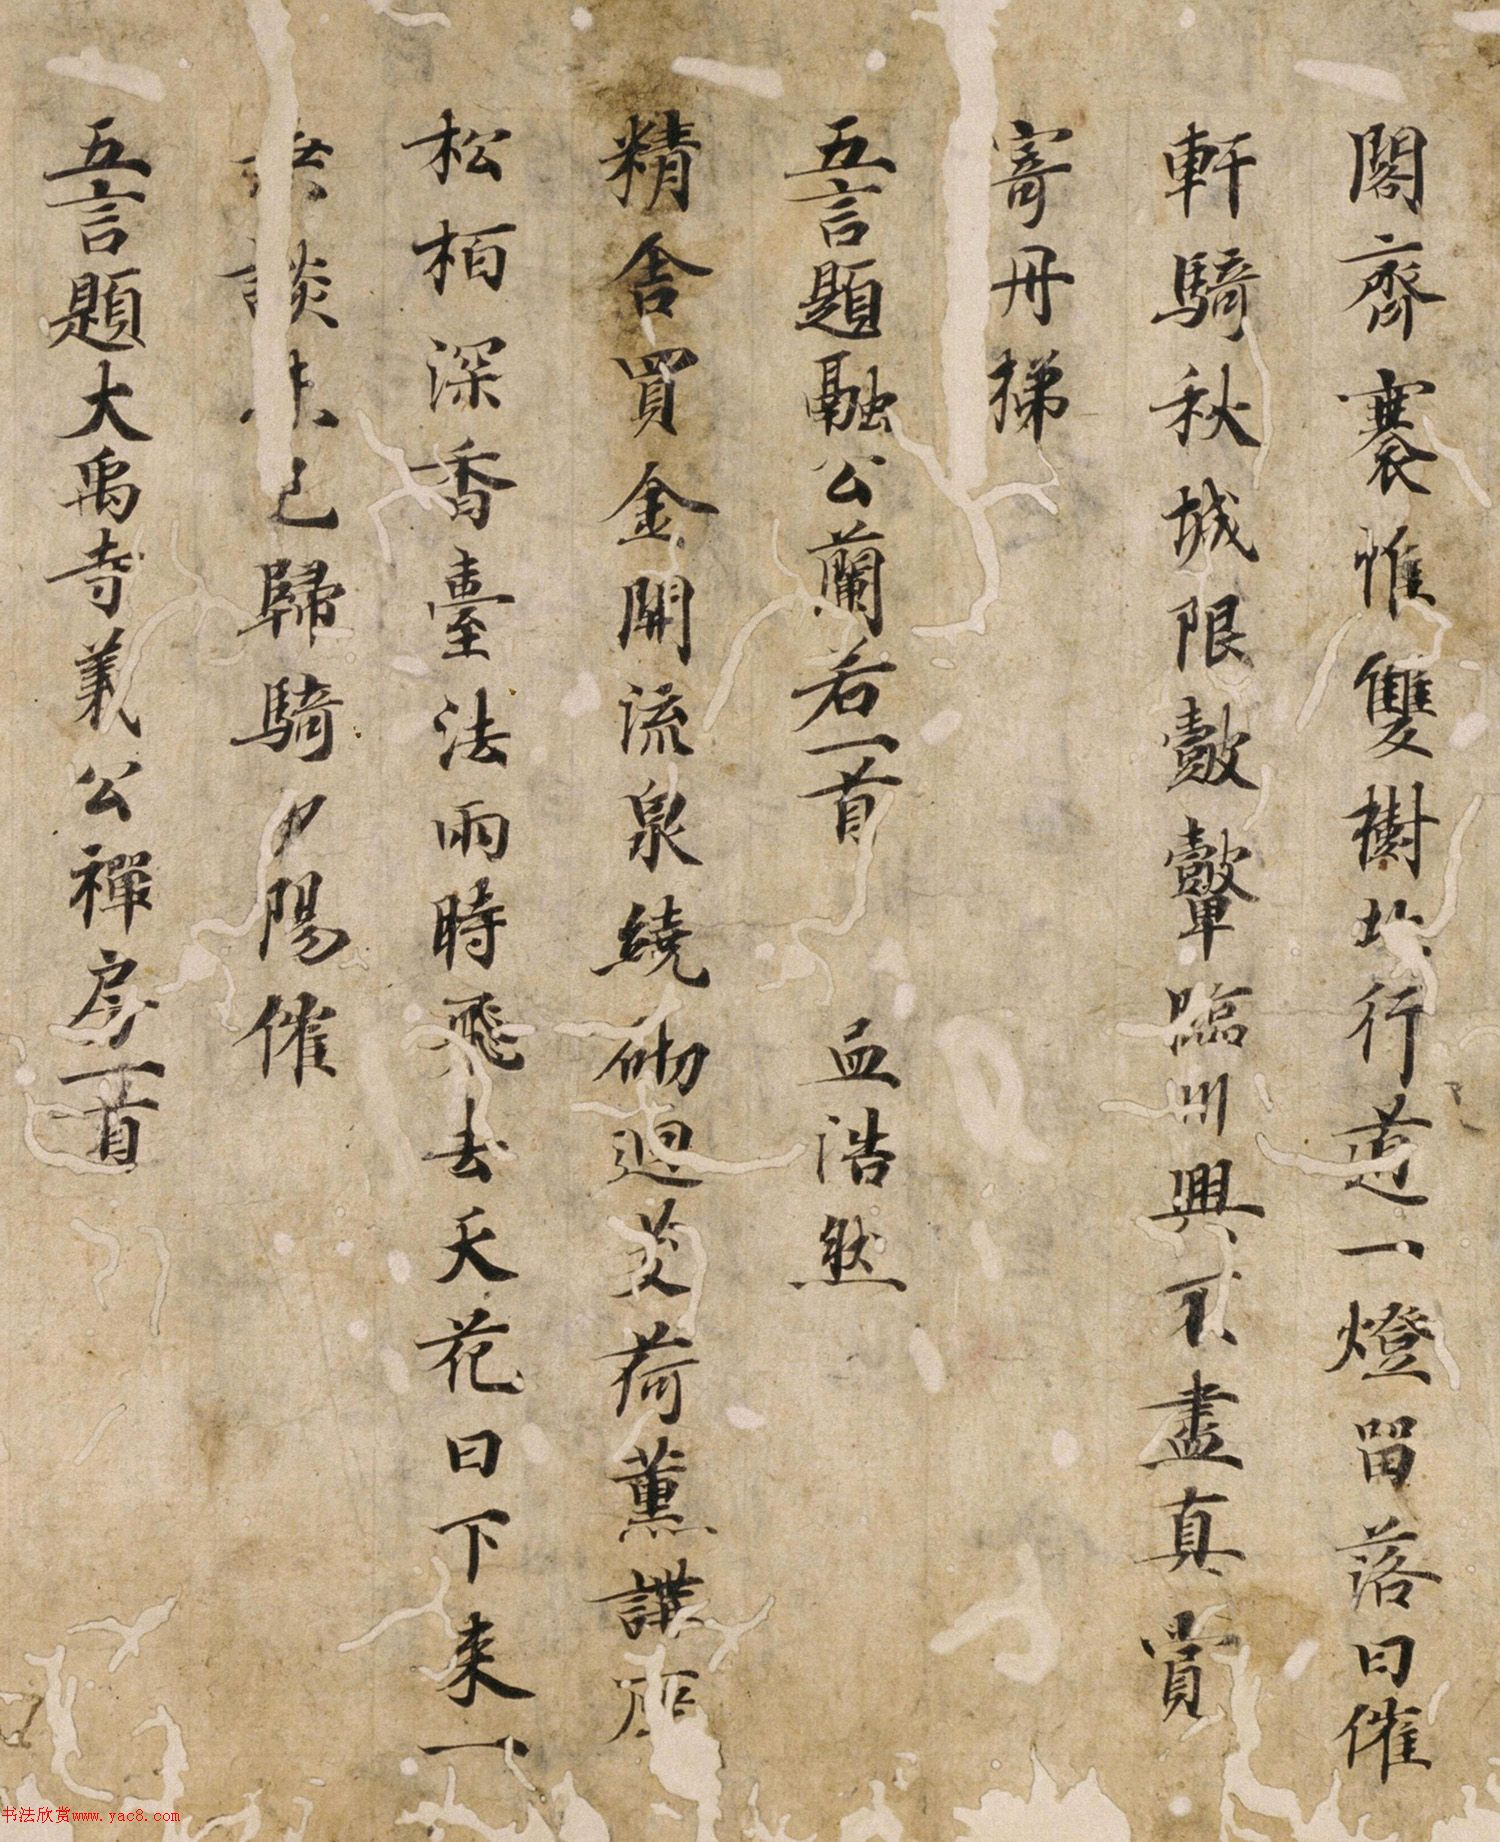 閣齊褰帷雙樹行道一燈留落日催
軒騎秋城限皷鼙臨川興不盡真賞
寄丹梯
五言題融公蘭若一首 孟浩然
精舍買金開流泉繞砌迴芰荷薰講座
松柏深香臺法雨時飛去天花日下來一
談未已歸騎夕陽催
五言題大禹寺義公禪房一首
书法欣赏www.yac8.com